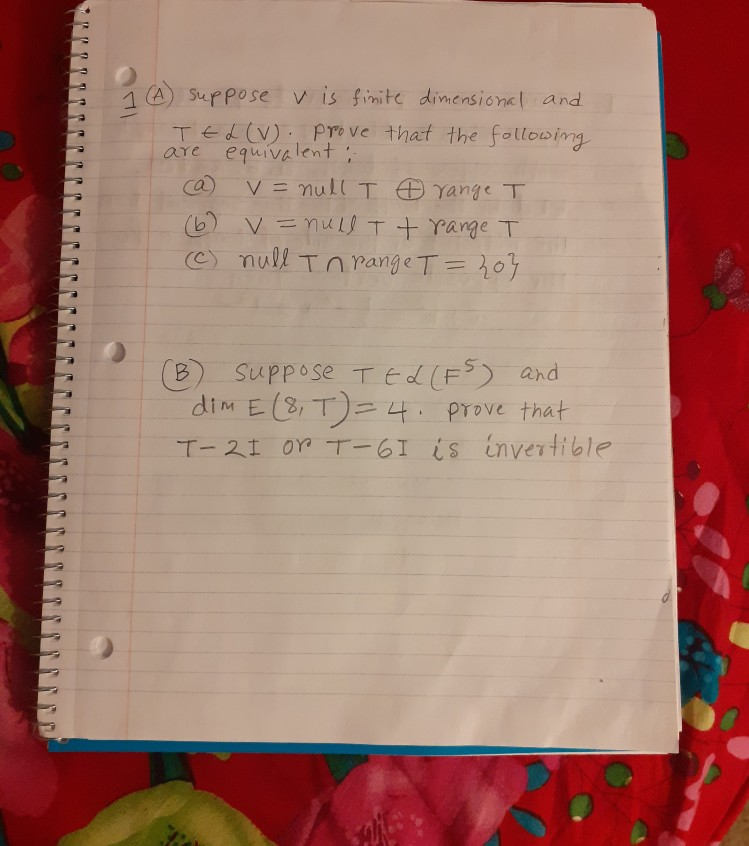 1 (A) suppose v is finite dimensional and
T ∈ L(V). prove that the following
are equivalent:
(a) V = null T ⊕ range T
(b) V = null T + range T
(c) null T ∩ range T = {0}
(B) suppose T ∈ L(F⁵) and
dim E(8,T) = 4. prove that
T-2I or T-6I is invertible